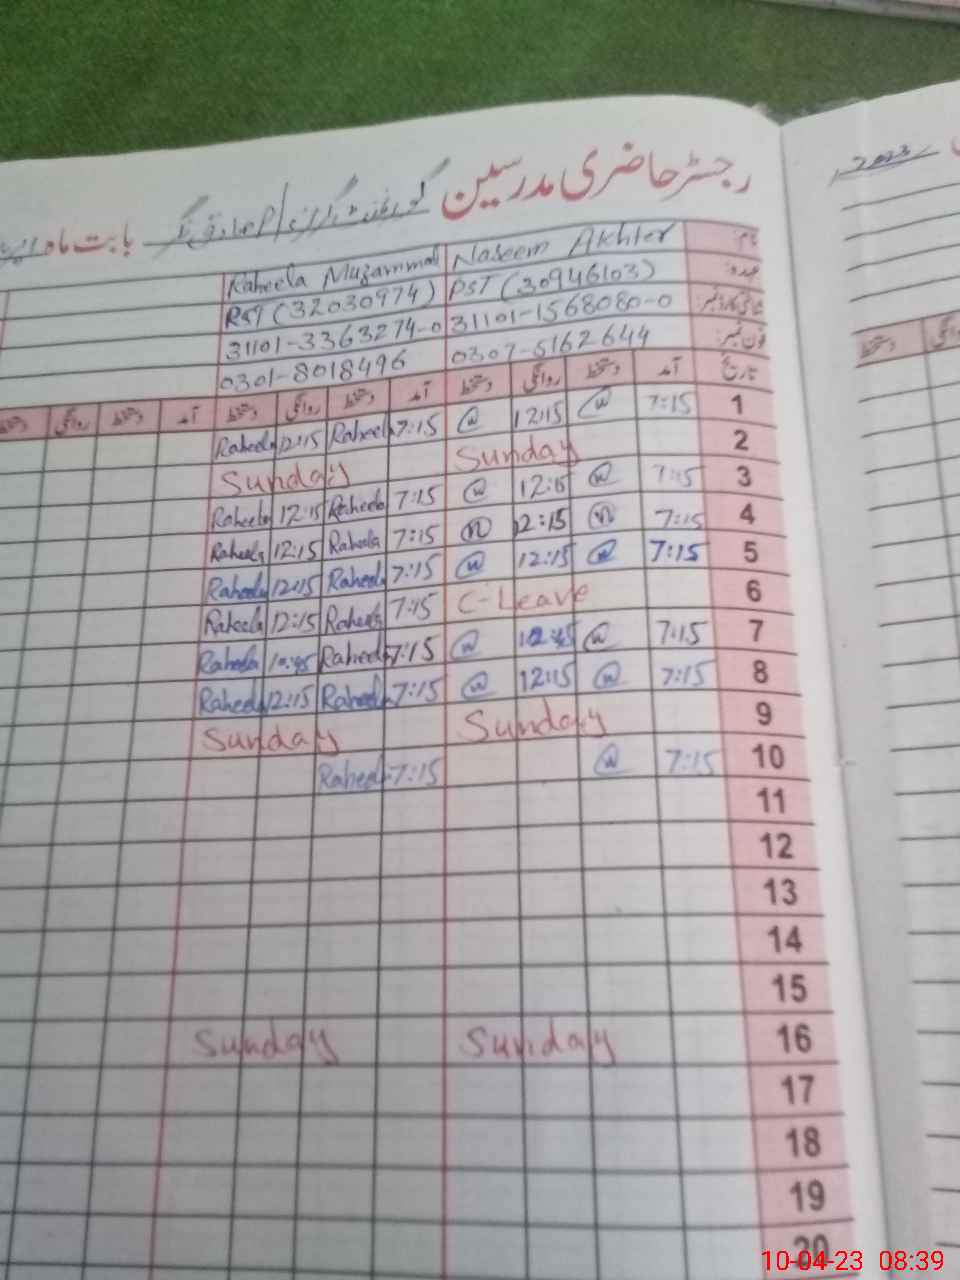 رجسٹر حاضری مدرسین گورنمنٹ گرلز پ/ا صادق نگر بابت ماہ
2023
نام: Naseem Akhter Raheela Muzammal
عہدہ: PST (30946103) PST (32030974)
شناختی کارڈ نمبر: 31101-1568080-0 31101-3363274-0
فون نمبر: 0307-5162644 0301-8018496
تاریخ آمد دستخط روانگی دستخط آمد دستخط روانگی دستخط آمد دستخط روانگی دستخط
1 7:15 12:15 7:15 Raheela 12:15 Raheela
2 Sunday Sunday
3 7:15 12:15 7:15 Raheela 12:15 Raheela
4 7:15 12:15 7:15 Raheela 12:15 Raheela
5 7:15 12:15 7:15 Raheela 12:15 Raheela
6 C-Leave 7:15 Raheela 12:15 Raheela
7 7:15 10:45 7:15 Raheela 10:45 Raheela
8 7:15 12:15 7:15 Raheela 12:15 Raheela
9 Sunday Sunday
10 7:15 7:15 Raheela
11
12
13
14
15
16 Sunday Sunday
17
18
19
20
10-04-23 08:39